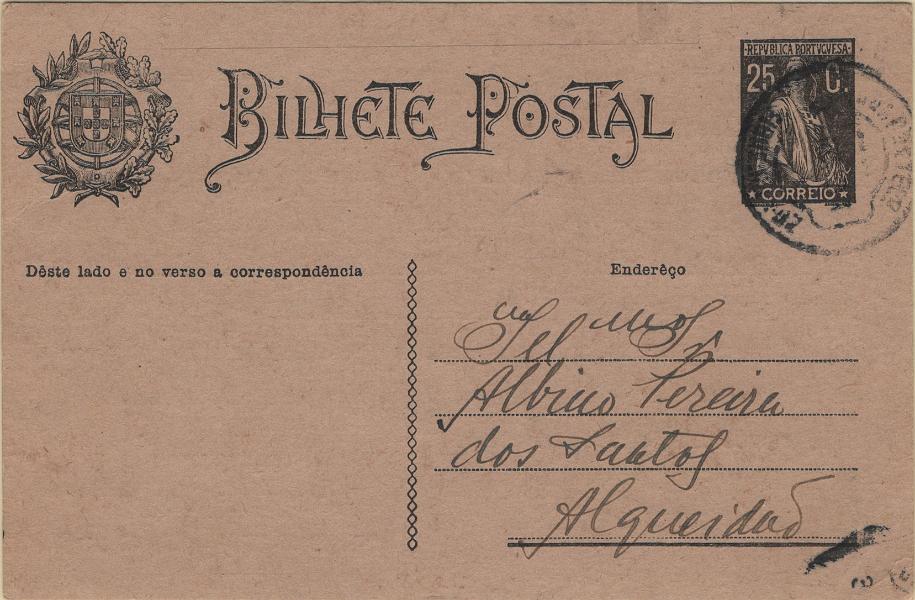 BILHETE POSTAL
REPVBLICA PORTVGVESA
25 C.
CORREIO
Dêste lado e no verso a correspondência
Enderêço
Snr
Albino Pereira
dos Santos
Alqueidão